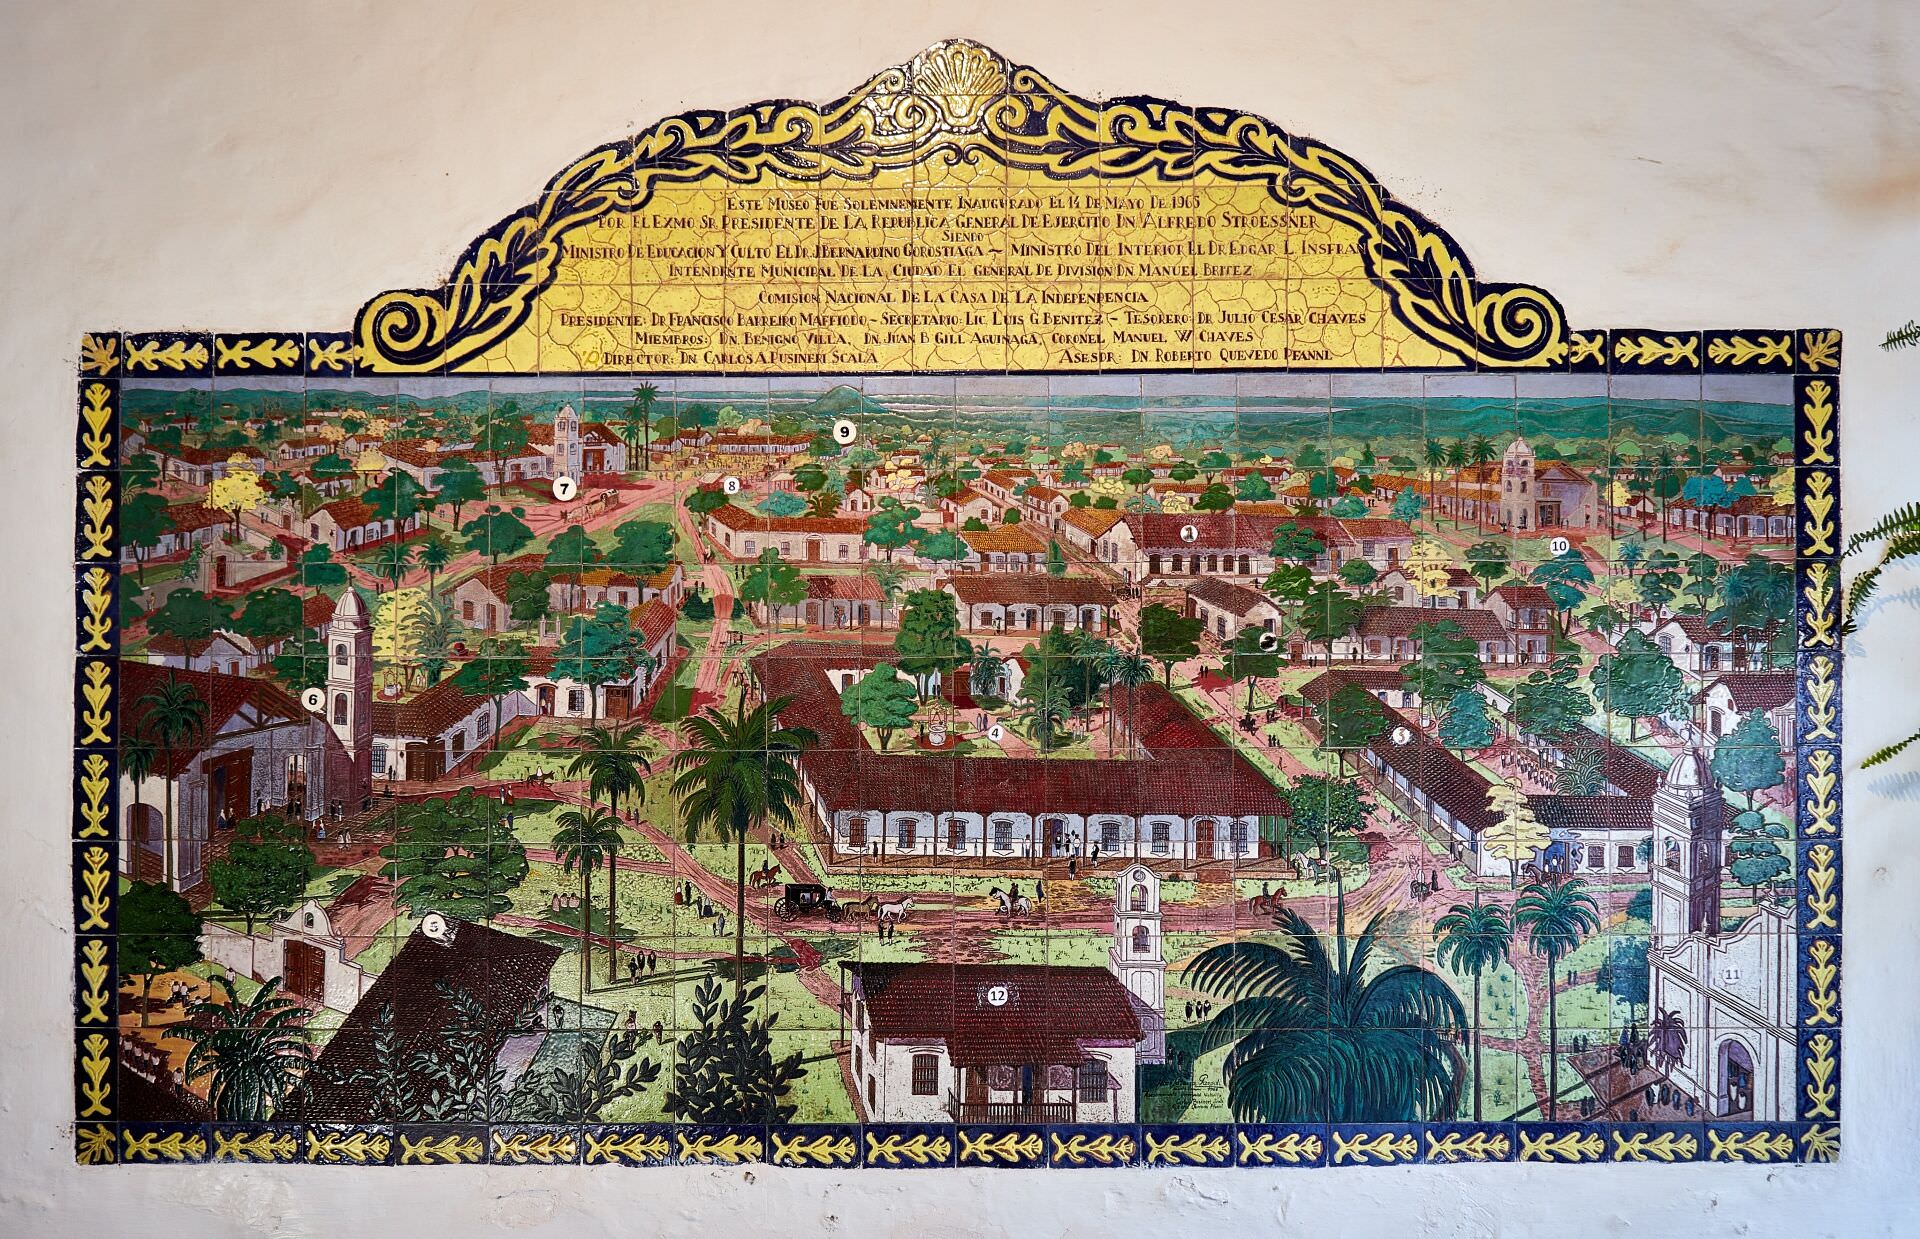 Este Museo Fué Solemnemente Inaugurado El 14 De Mayo De 1965
Por El Exmo Sr Presidente De La Republica General De Ejercito Dn Alfredo Stroessner
Siendo
Ministro De Educacion Y Culto El Dr. J Bernardino Gorostiaga – Ministro Del Interior El Dr Edgar L. Insfran
Intendente Municipal De La Ciudad El General De Division Dn Manuel Britez
Comision Nacional De La Casa De La Independencia
Presidente: Dr Francisco Barreiro Maffiodo – Secretario: Lic. Luis G. Benitez – Tesorero: Dr Julio Cesar Chaves
Miembros: Dn. Benigno Villa, Dn. Juan B Gill Aguinaga, Coronel Manuel W Chaves
Director: Dn Carlos A. Pusineri Scala Asesor: Dn. Roberto Quevedo Pfannl
9
7
8
1
10
6
4
3
5
11
12